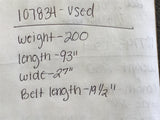 107834 - used
weight - 200
length - 93"
wide - 27"
Belt length - 19 1/2"